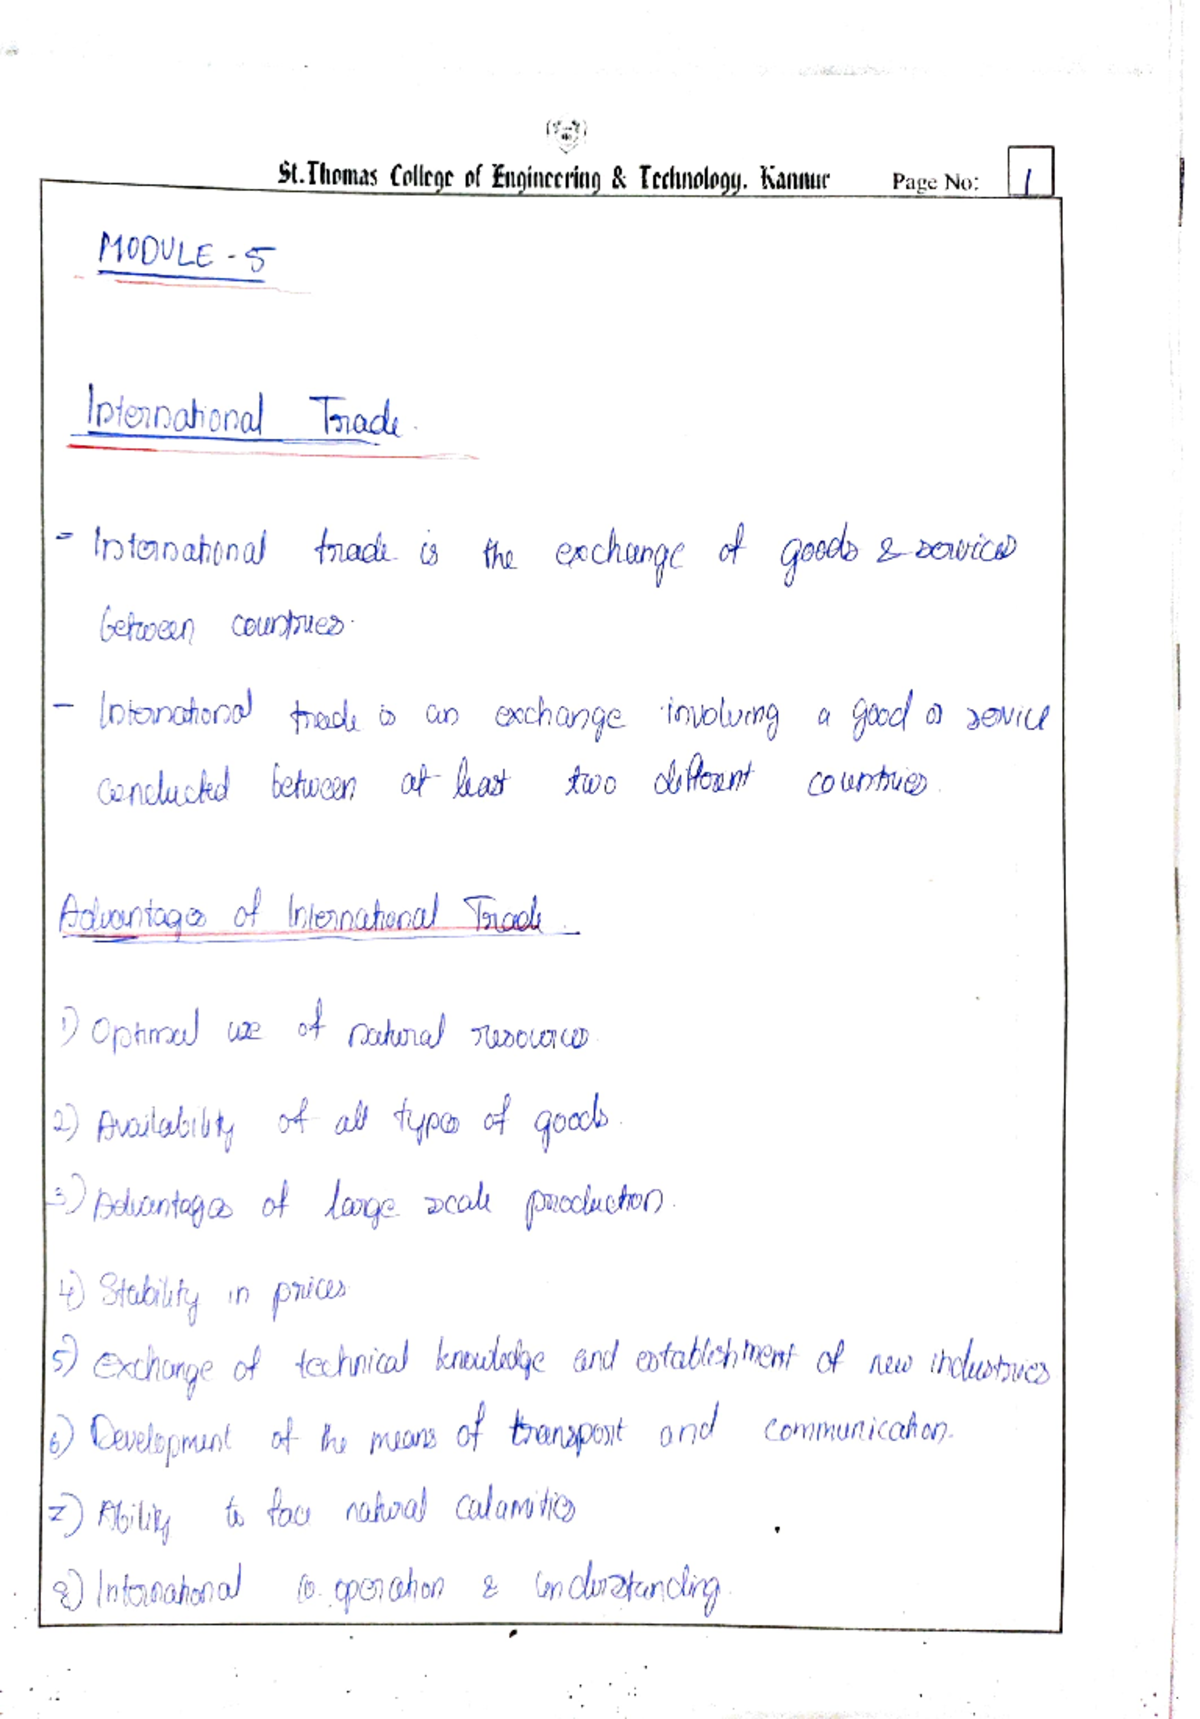 St.Thomas College of Engineering & Technology. Kannur Page No: 1
MODULE - 5
International Trade.
- International trade is the exchange of goods & services
between countries.
- International trade is an exchange involving a good or service
conducted between at least two different countries.
Advantages of International Trade.
1) Optimal use of natural resources
2) Availability of all types of goods.
3) Advantages of large scale production.
4) Stability in prices
5) Exchange of technical knowledge and establishment of new industries
6) Development of the means of transport and communication.
7) Ability to face natural calamities
8) International co.operation & understanding.